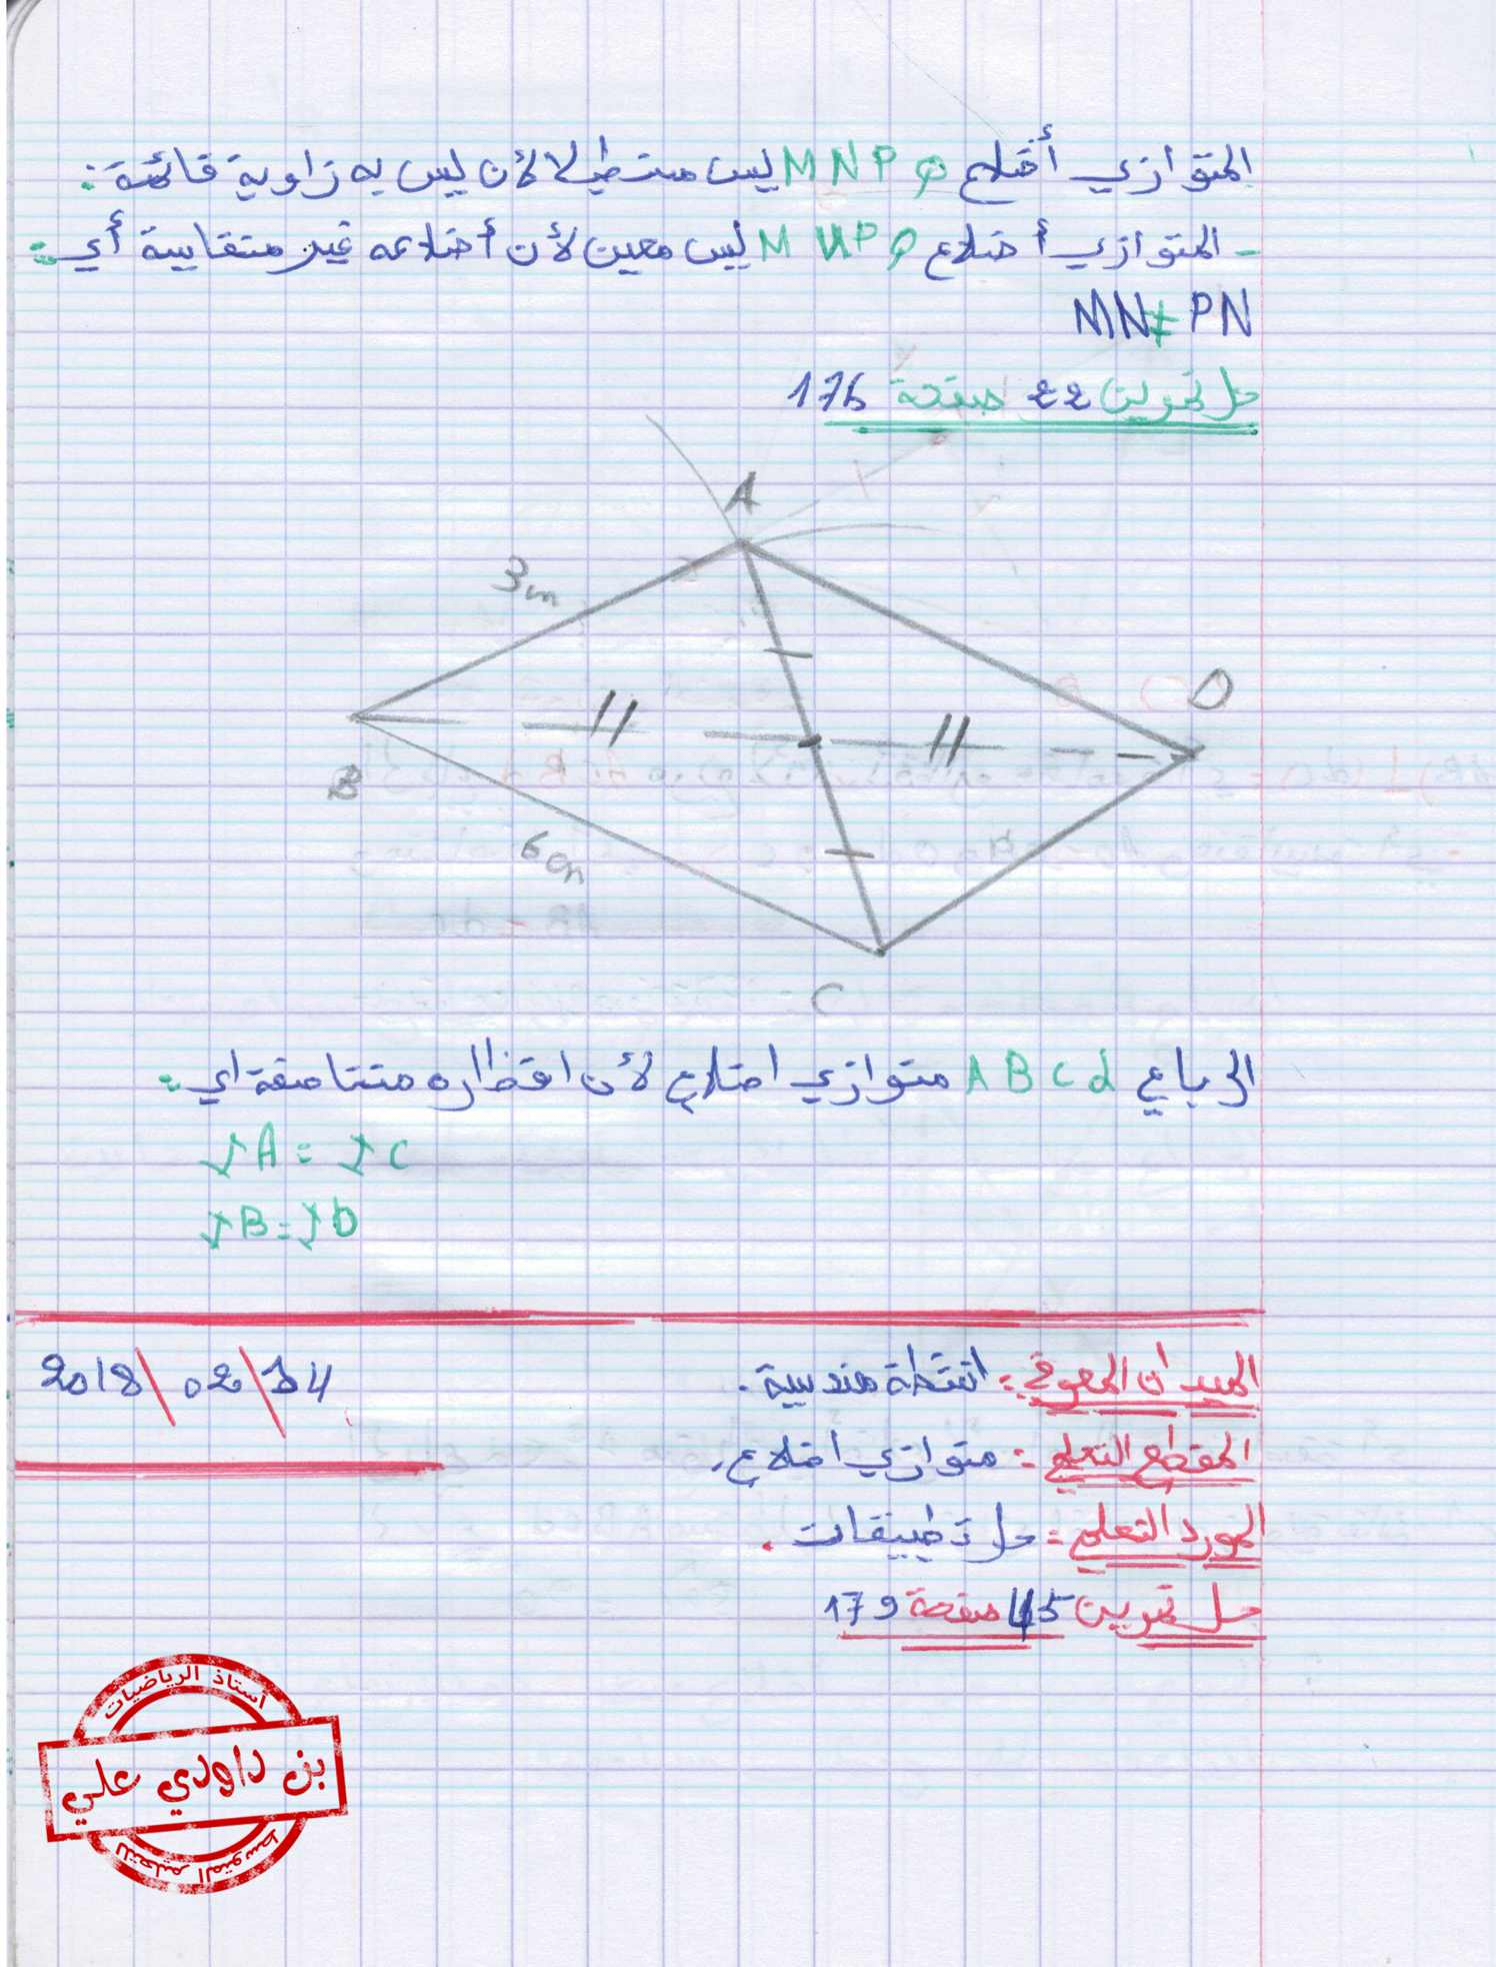 المتوازي أضلاع MNPQ ليس مستطيلا لأن ليس به زاوية قائمة:
- المتوازي أضلاع MNPQ ليس معين لأن أضلاعه غير متقايسة أي:
MN≠PN
حل تمرين 22 صفحة 176
A
3cm
D
B
6cm
C
الرباعي ABCd متوازي اضلاع لأن اقطاره متناصفة اي:
IA = IC
IB = ID
2018/02/14
الميدان المعرفي: انشطة هندسية.
المقطع التعلمي: متوازي اضلاع.
المورد التعلمي: حل تطبيقات.
حل تمرين 45 صفحة 179
أستاذ الرياضيات
بن داودي علي
للتعليم المتوسط